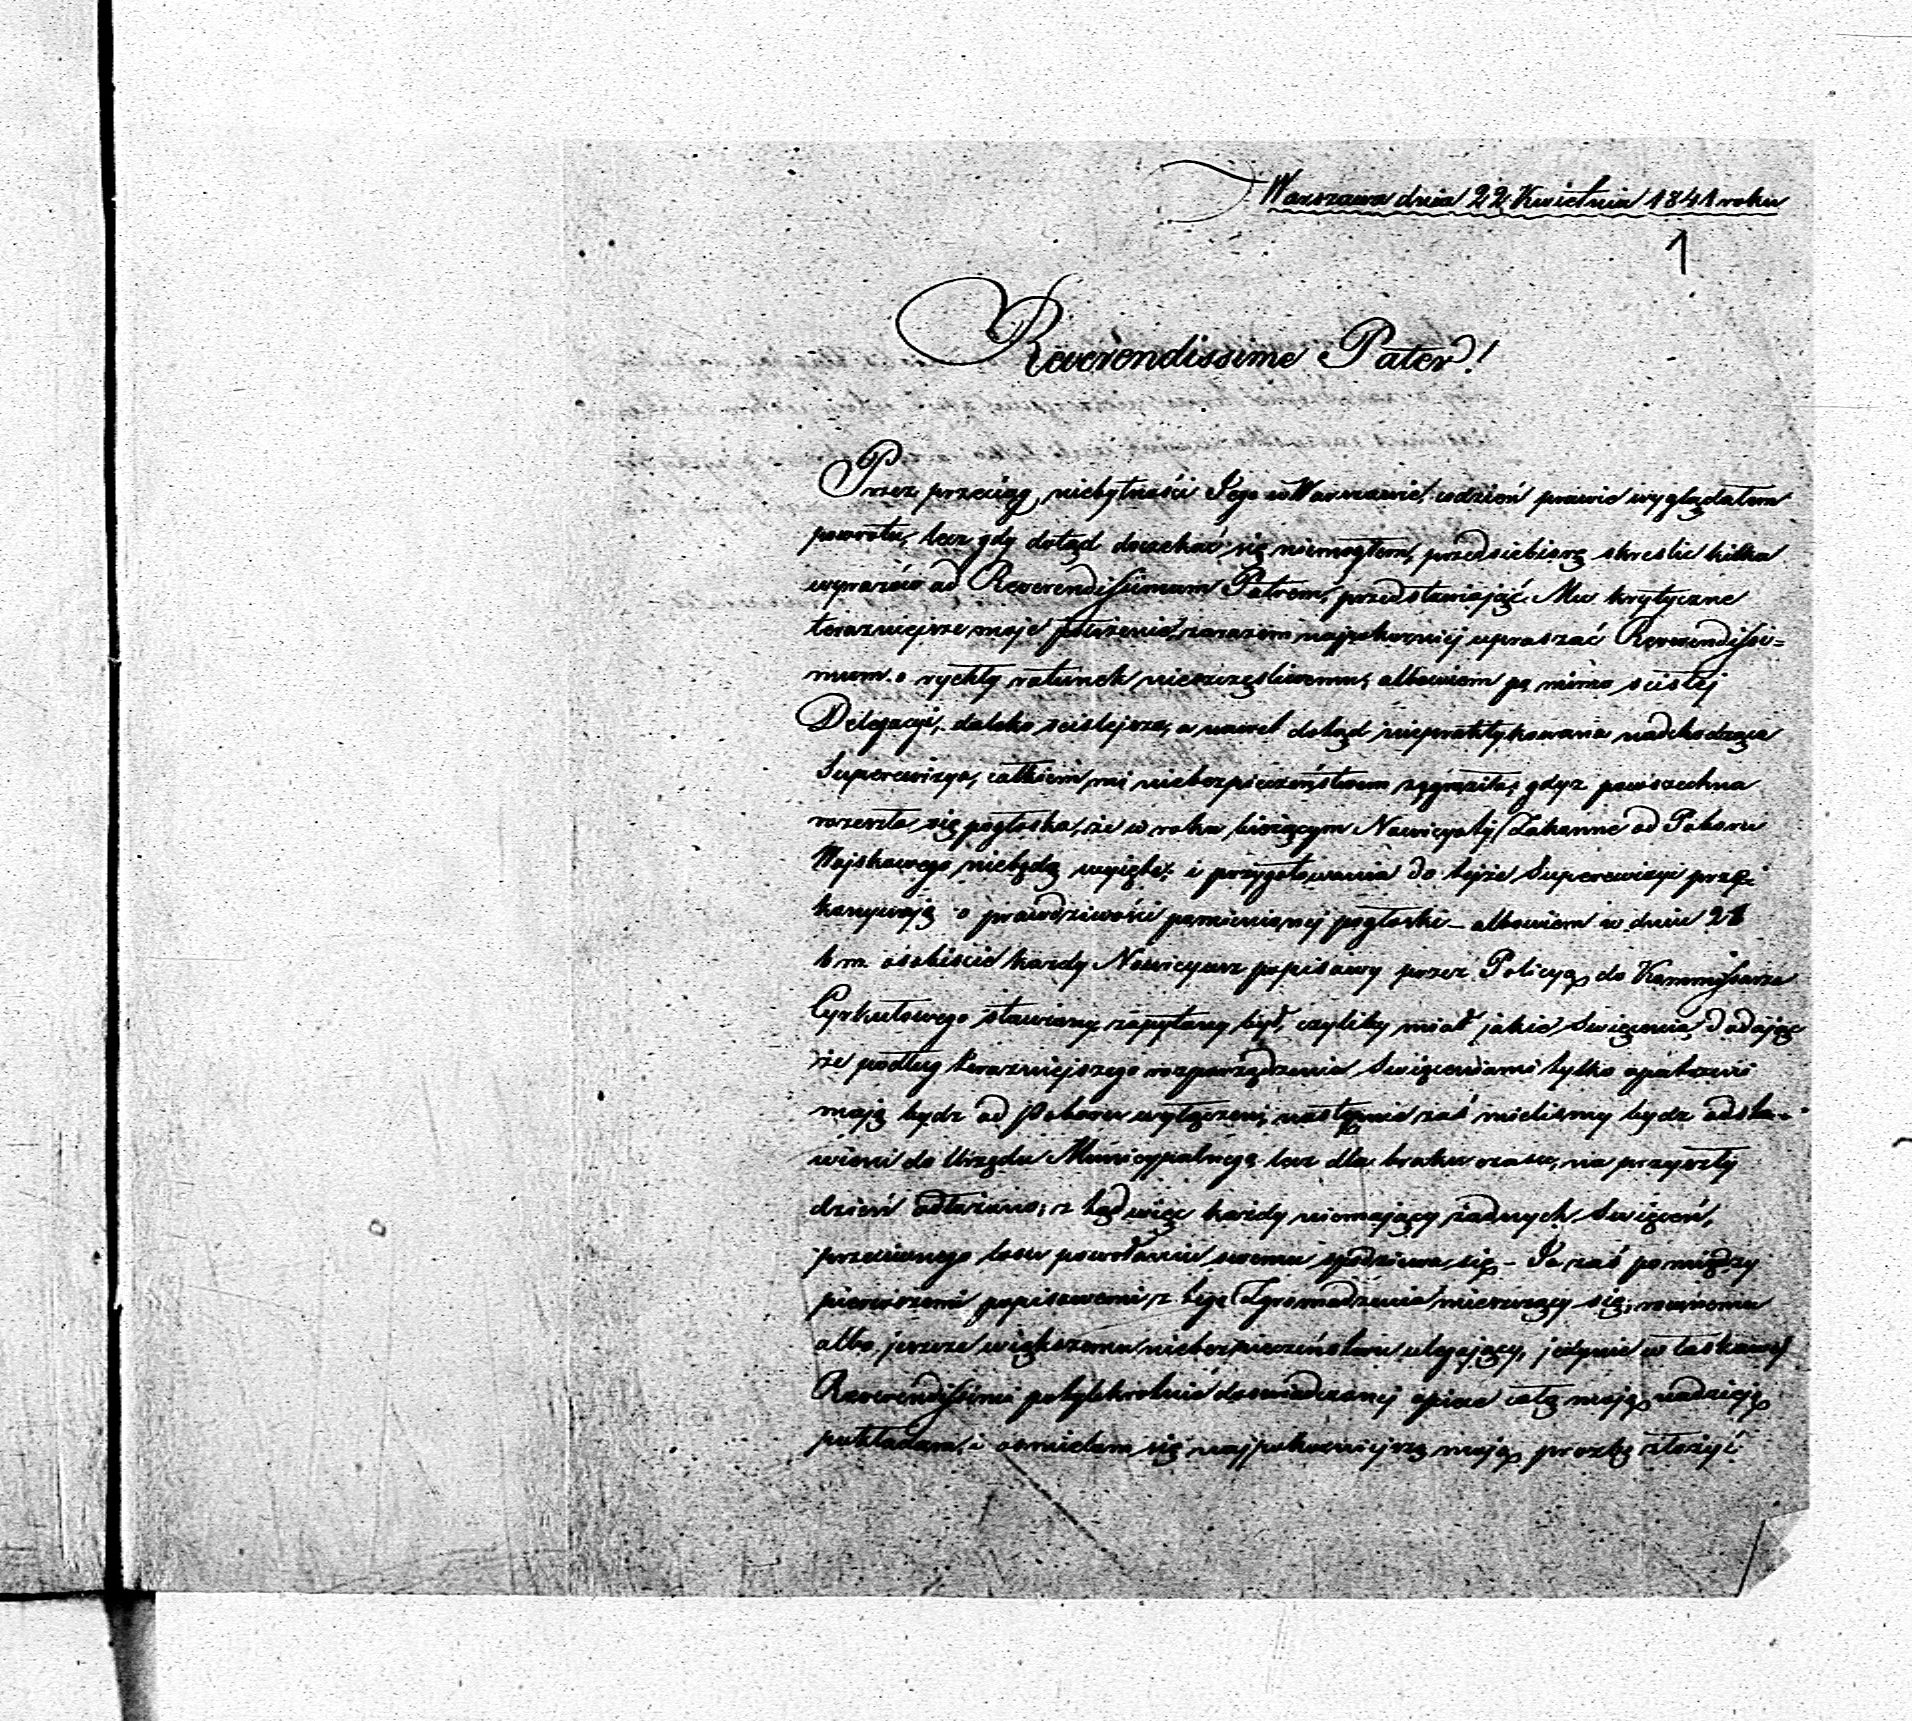 Warszawa dnia 22 Kwietnia 1841 roku
1
Reverendissime Pater!
Przez przeciąg niebytności Jego w Warszawie codzień prawie wyglądałem
powrotu, lecz gdy dotąd doczekać się niemogłem, przedsiebiorę skreślic kilka
wyrazów ad Reverendissimum Patrem, przedstawiając Mu krytyczne
terazniejsze moje położenie, zarazem najpokorniej upraszać Reverendissi=
mum o rychły ratunek nieszczęśliwemu, albowiem po mimo scisłej
Delegacyi, daleko scislejsza, a nawet dotąd niepraktykowana nadchodząca
Superewizya, całkiem mi niebezpieczeństwem zagraziła, gdyz powszechna
rozeszła się pogłoska, że w roku bieżącym Nowicyaty Zakonne od Poboru
Wojskowego niebędą wyjęte, i przygotowania do tejże Superewizyi prze
konywają o prawdziwości pomienionej pogłoski – albowiem w dniu 21
b m. osobiscie kazdy Nowicyusz popisowy przez Policyą do Kommissarza
Cyrkułowego stawiany, zapytany był, czyliby miał jakie Swięcenia, dodając
że podług terazniejszego rozporządzenia Swięceniami tylko opatrzeni
mają bydz od Poboru wyłączeni, następnie zaś mielismy bydz odsta-
wieni do Urzędu Municypalnego lecz dla braku czasu, na przyszły
dzień odłożono; z tąd więc każdy niemający żadnych Swięceń,
przeciwnego losu powołaniu swemu spodziewa się – Ja zaś pomiędzy
pierwszemi popisowemi z tego Zgromadzenia mieszczący się, rownemu
albo jeszcze większemu niebezpieczeństwu ulegający, jedynie w łaskawej
Reverendissimi potylekrotnie doswiadczonej opiece całą moją nadzieję
pokładam, i osmielam się najpokorniejszą moją prozbę złożyć